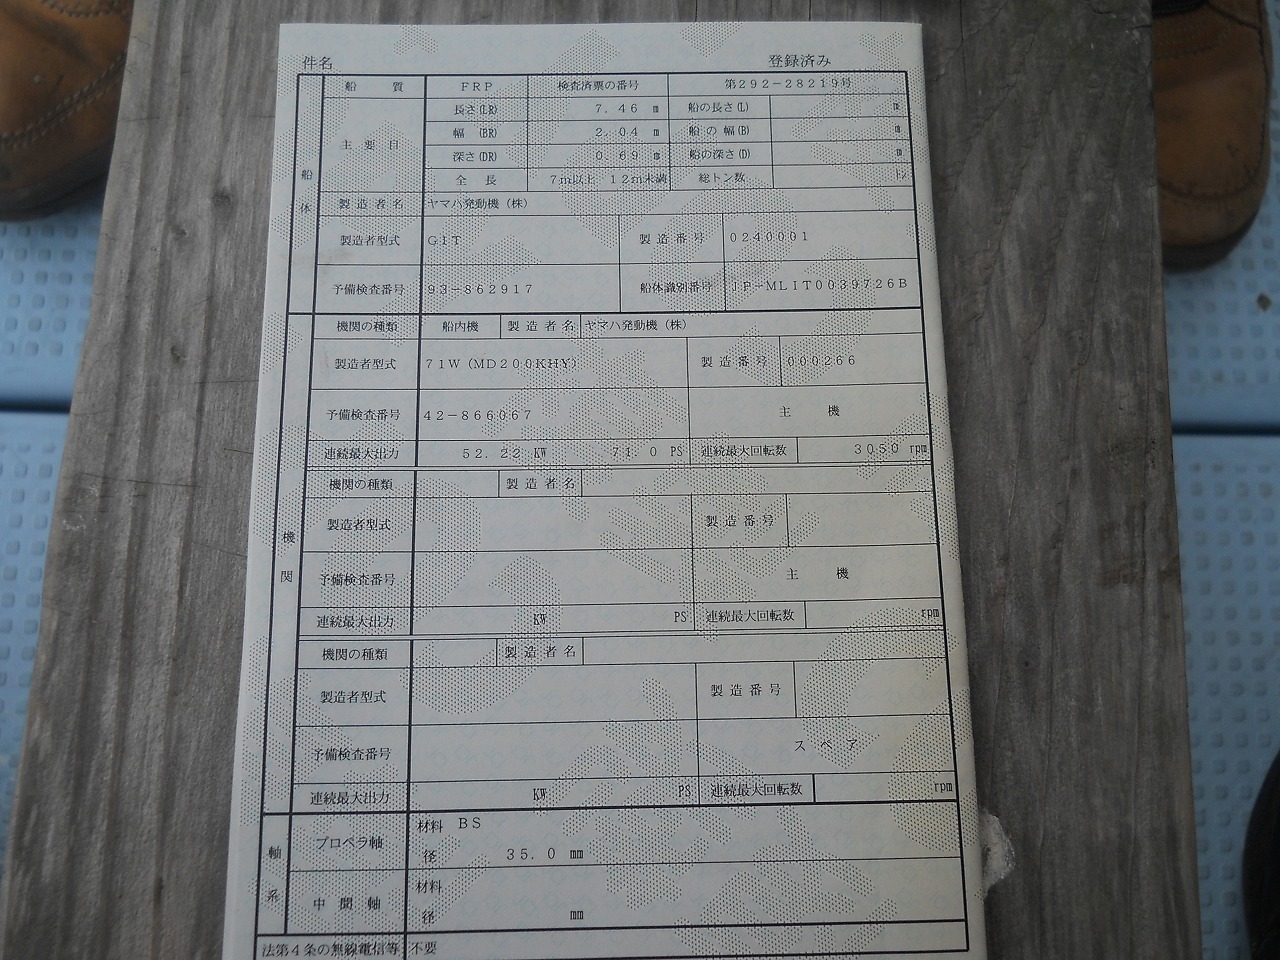 件名 登録済み
船質 FRP 検査済票の番号 第292-28219号
船体
主要目
長さ(LR) 7.46 m 船の長さ(L) m
幅 (BR) 2.04 m 船の幅(B) m
深さ(DR) 0.69 m 船の深さ(D) m
全長 7m以上 12m未満 総トン数 トン
製造者名 ヤマハ発動機(株)
製造者型式 G1T 製造番号 0240001
予備検査番号 93-862917 船体識別番号 JP-MLIT0039726B
機関
機関の種類 船内機 製造者名 ヤマハ発動機(株)
製造者型式 71W(MD200KHY) 製造番号 000266
予備検査番号 42-866067 主機
連続最大出力 52.22 KW 71.0 PS 連続最大回転数 3050 rpm
機関の種類 製造者名
製造者型式 製造番号
予備検査番号 主機
連続最大出力 KW PS 連続最大回転数 rpm
機関の種類 製造者名
製造者型式 製造番号
予備検査番号 スペア
連続最大出力 KW PS 連続最大回転数 rpm
軸系
プロペラ軸 材料 BS
径 35.0 mm
中間軸 材料
径 mm
法第4条の無線電信等 不要